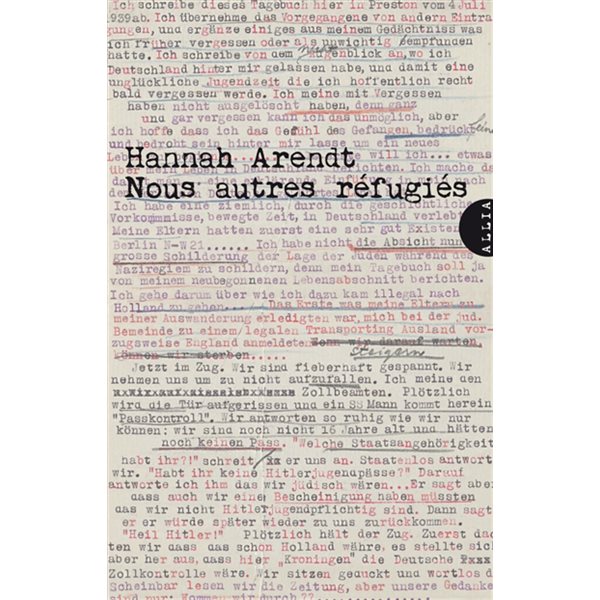 Ich schreibe dieses Tagebuch hier in Preston vom 4 Juli
1939 ab. Ich übernehme das Vorgegangene von andern Eintra
gungen, und ergänze einiges aus meinem Gedächtniss was
ich früher vergessen oder als unwichtig empfunden
hatte. Ich schreibe von dem Augenblick an, wo ich
Deutschland hinter mir gelassen habe, und damit eine
unglückliche Jugendzeit die ich hoffentlich recht
bald vergessen werde. Ich meine mit Vergessen
haben nicht ausgelöscht haben, denn ganz
und gar vergessen kann ich das unmöglich, aber
ich hoffe dass ich das Gefühl des Gefangen, bedrückt
und bedroht sein hinter mir lasse um ein neues
will ich.... etwas
Hannah Arendt
Nous autres réfugiés
ALLIA
Ich habe eine ziemlich, durch die geschichtliche
Vorkommnisse, bewegte Zeit, in Deutschland verlebt
Meine Eltern hatten zuerst eine sehr gut Existen
Berlin N-W 21...... Ich habe nicht die Absicht nun
grosse Schilderung der Lage der Juden während des
Naziregiem zu schildern, denn mein Tagebuch soll ja
von meinem neubegonnenen Lebensabschnitt berichten.
Ich gehe darum über wie ich dazu kam illegal nach
Holland zu gehen... Das Erste war meine Eltern zu
meiner Auswanderung erledigten war, mich bei der jüd.
Bemeinde zu einem/legalen Transporting Ausland vor-
zugsweise England anmelden. Wenn wir darauf warten,
können wir sterben.....
Jetzt im Zug. Wir sind fieberhaft gespannt. Wir
nehmen uns um zu nicht aufzufallen. Ich meine den
Zollbeamten. Plötzlich
wird die Tür aufgerissen und ein SS Mann kommt herein
"Passkontroll". Wir antworten so ruhig wie wir nur
können: wir sind noch nicht 16 Jahre alt und hätten
noch keinen Pass. "Welche Staatsangehörigkeit
habt ihr?!" schreit er uns an. Staatenlos antwort
wir. "Habt ihr keine Hitlerjugendpässe?" Darauf
antworte ich ihm das wir jüdisch wären...Er sagt aber
dass auch wir eine Bescheinigung haben müssten
das wir nicht Hitlerjugendpflichtig sind. Dann sagt
er er würde später wieder zu uns zurückkommen.
"Heil Hitler!" Plötzlich hält der Zug. Zuerst dac
ten wir dass das schon Holland währe, es stellte sich
aber her aus, dass hier "Kroningen" die Deutsche
Zollkontrolle wäre. Wir sitzen geduckt und wortlos da
Scheinbar lesen wir die Zeitung, aber unser Gedanke